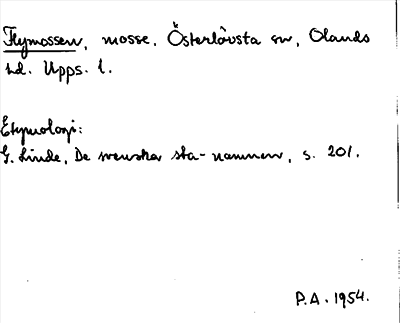 Flymossen, mosse. Österlövsta sn, Olands
hd. Upps. l.
Etymologi:
G. Linde, De svenska sta-namnen, s. 201.
P.A. 1954.